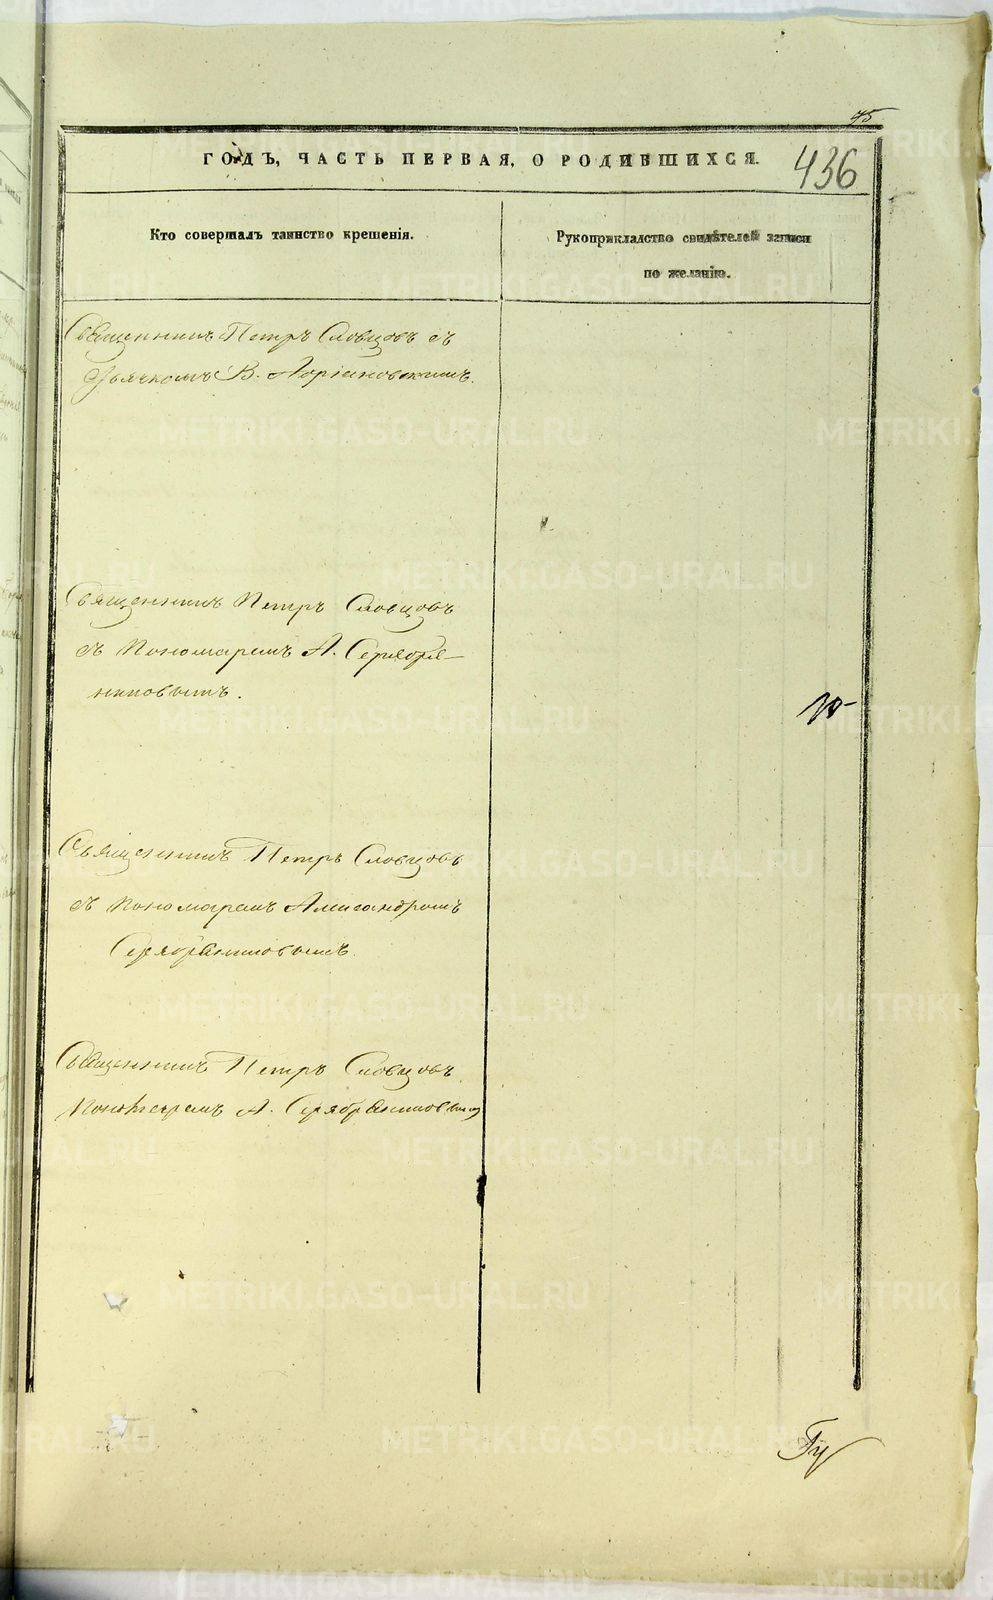 75
ГОДЪ, ЧАСТЬ ПЕРВАЯ, О РОДИВШИХСЯ.
436
Кто совершалъ таинство крещенія.
Рукоприкладство свидѣтелей записи
по желанію.
Священникъ Петръ Словцовъ съ
дьячкомъ В.
Священникъ Петръ Словцовъ
съ Пономаремъ А. Серебря-
никовымъ.
Священникъ Петръ Словцовъ
съ Пономаремъ Александромъ
Серебряниковымъ.
Священникъ Петръ Словцовъ
Пономаремъ А. Серебряниковымъ
METRIKI.GASO-URAL.RU